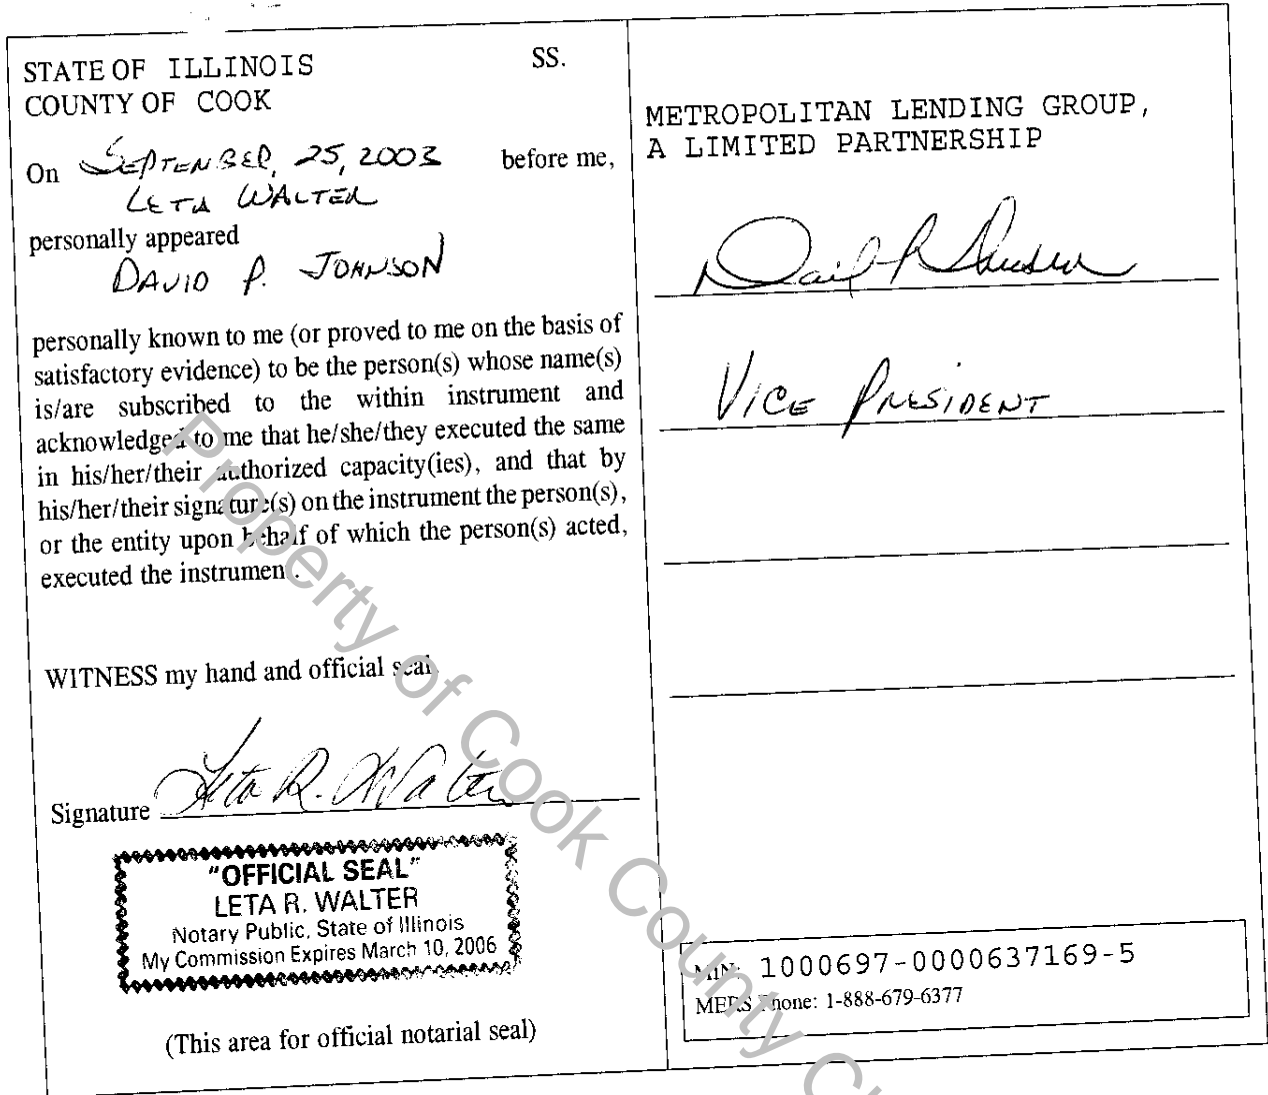 STATE OF ILLINOIS SS.
COUNTY OF COOK
On SEPTEMBER, 25, 2003 before me,
LETA WALTER
personally appeared
DAVID P. JOHNSON
personally known to me (or proved to me on the basis of
satisfactory evidence) to be the person(s) whose name(s)
is/are subscribed to the within instrument and
acknowledged to me that he/she/they executed the same
in his/her/their authorized capacity(ies), and that by
his/her/their signature(s) on the instrument the person(s),
or the entity upon behalf of which the person(s) acted,
executed the instrument.
WITNESS my hand and official seal.
Signature Leta R. Walter
"OFFICIAL SEAL"
LETA R. WALTER
Notary Public, State of Illinois
My Commission Expires March 10, 2006
(This area for official notarial seal)
METROPOLITAN LENDING GROUP,
A LIMITED PARTNERSHIP
VICE PRESIDENT
MIN: 1000697-0000637169-5
MERS Phone: 1-888-679-6377
Property of Cook County